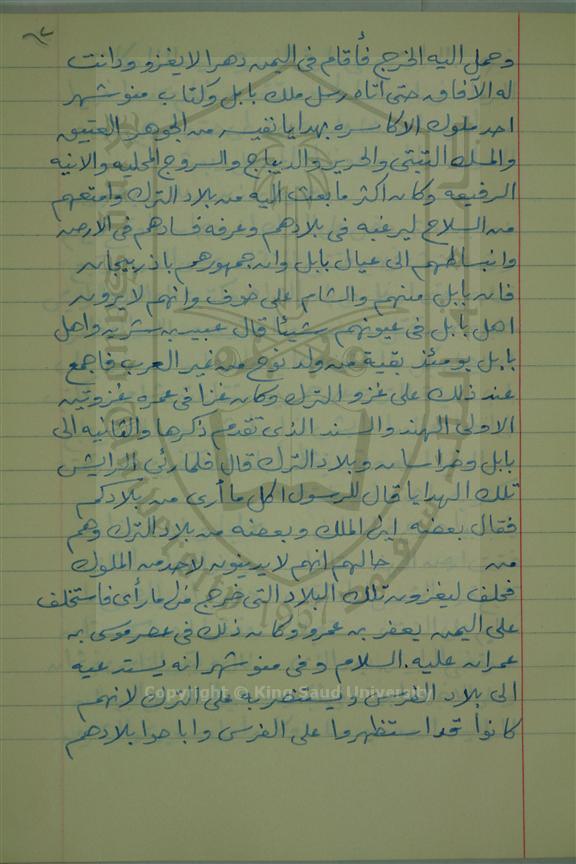 ٦٢
وحمل اليه الخرج فأقام فى اليمن دهرا لا يغزو ودانت
له الآفاق حتى أتاه رسل ملك بابل وكتاب منوشهر
احد ملوك الاكاسره بهدايا نفيسه من الجوهر العتيق
والمسك التبتى والحرير والديباج والسروج المحليه والانيه
الرفيعه وكان اكثر ما بعث اليه من بلاد الترك وامتعهم
من السلاح ليرغبه فى بلادهم وعرفه فسادهم فى الارض
وانبساطهم الى عيال بابل وان جمهورهم باذربيجان
فان بابل منهم والشام على خوف وانهم لا يرون
اهل بابل فى عيونهم شيئا قال عبيد بن شريه واهل
بابل يومئذ بقية من ولد نوح من غير العرب فاجمع
عند ذلك على غزو الترك وكان غزا فى عمره غزوتين
الاولى الهند والسند الذى تقدم ذكرها والثانيه الى
بابل وخراسان وبلاد الترك قال فلما رئى الرايش
تلك الهدايا قال للرسول اكل ما أرى من بلادكم
فقال بعضه ايها الملك وبعضه من بلاد الترك وهم
من حالهم انهم لا يدينون لاحد من الملوك
فحلف ليغزون تلك البلاد التى خرج منها ما رأى فاستخلف
على اليمن يعفر بن عمرو وكان ذلك فى عصر موسى بن
عمران عليه السلام وفى منوشهر انه يستدعيه
الى بلاد الفرس ويستنصر به على الترك لانهم
كانوا قد استظهروا على الفرس واباحوا بلادهم
Copyright © King Saud University
1957